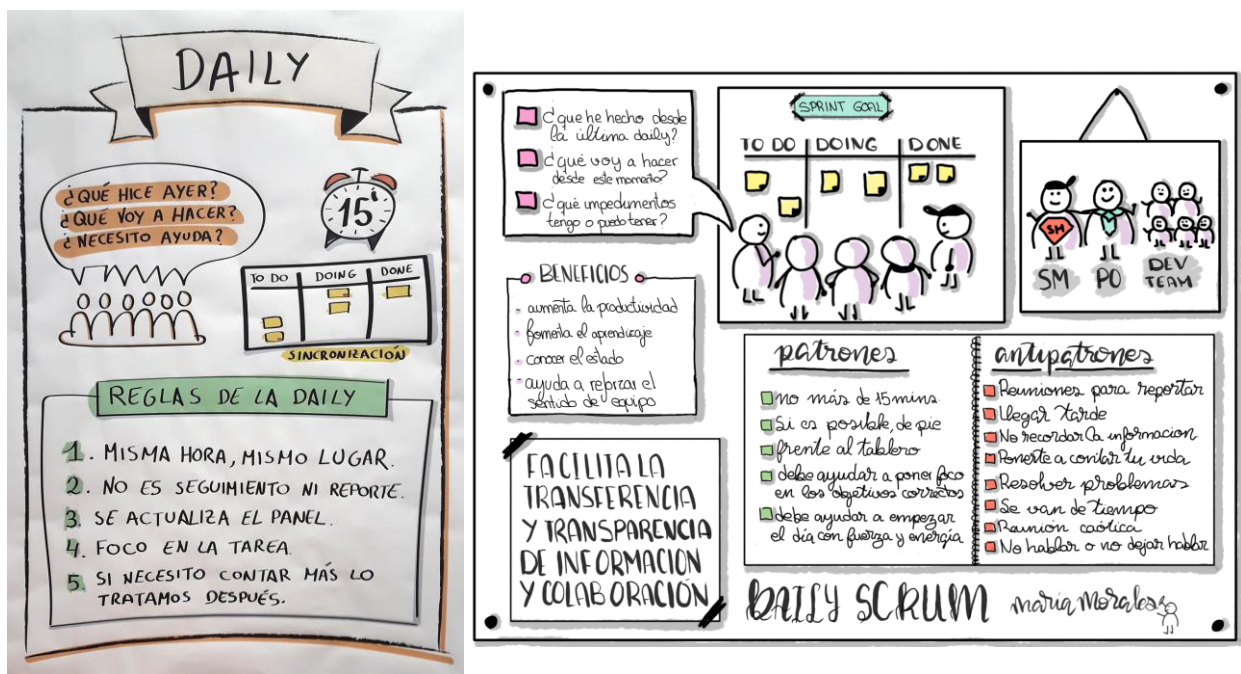 DAILY
¿QUÉ HICE AYER?
¿QUÉ VOY A HACER?
¿NECESITO AYUDA?
15'
TO DO
DOING
DONE
SINCRONIZACIÓN
REGLAS DE LA DAILY
1. MISMA HORA, MISMO LUGAR.
2. NO ES SEGUIMIENTO NI REPORTE.
3. SE ACTUALIZA EL PANEL.
4. FOCO EN LA TAREA.
5. SI NECESITO CONTAR MÁS LO
TRATAMOS DESPUÉS.
¿que he hecho desde
la última daily?
¿qué voy a hacer
desde este momento?
¿qué impedimentos
tengo o puedo tener?
SPRINT GOAL
TO DO
DOING
DONE
SM
SM
PO
DEV
TEAM
BENEFICIOS
aumenta la productividad
fomenta el aprendizaje
conocer el estado
ayuda a reforzar el
sentido de equipo
patrones
no más de 15 mins
Si es posible, de pie
frente al tablero
debe ayudar a poner foco
en los objetivos correctos
debe ayudar a empezar
el día con fuerza y energía
antipatrones
Reuniones para reportar
Llegar tarde
No recordar la informacion
Ponerte a contar tu vida
Resolver problemas
Se van de tiempo
Reunión caótica
No hablar o no dejar hablar
FACILITA LA
TRANSFERENCIA
Y TRANSPARENCIA
DE INFORMACION
Y COLABORACIÓN
DAILY SCRUM
maria morales